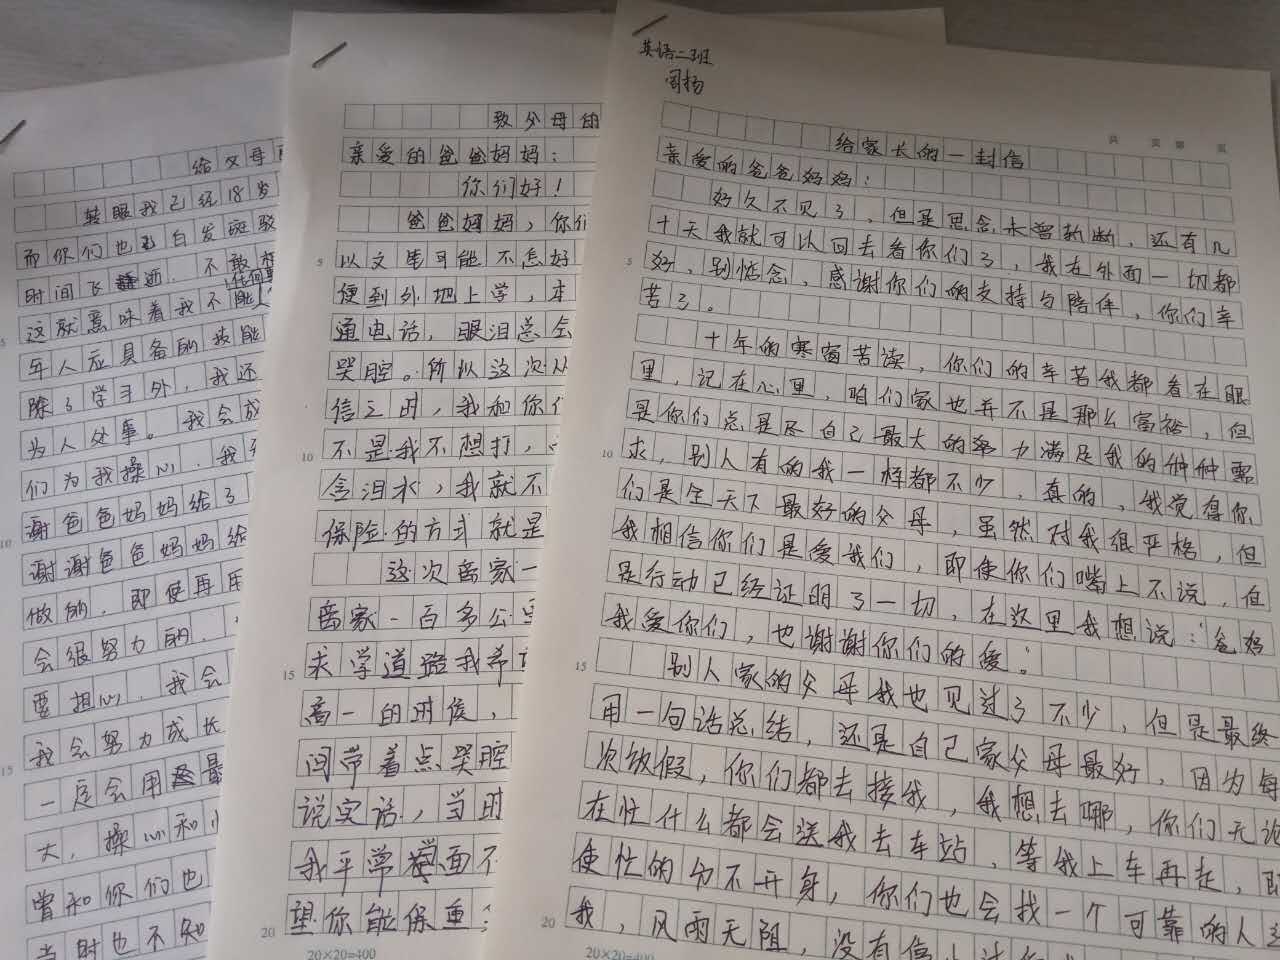 给父母
转眼我已经18岁
而你们也已白发斑驳
时间飞逝.不敢
这就意味着我不能
任何
年人应具备的技能
除了学习外,我还
为人处事。我会成
们为我操心.我
谢爸爸妈妈给了
谢谢爸爸妈妈给
做的.即使再
会很努力的.
要担心.我会
我会努力成长
一定会用最
大,操心和
曾和你们也
当时也不知
5
10
15
致父母的
亲爱的爸爸妈妈:
你们好!
爸爸妈妈,你们
以文笔可能不怎好
便到外地上学,本
通电话,眼泪总会
哭腔。所以这次从
信之时,我和你们
不是我不想打,
含泪水,我就不
保险的方式就是
这次离家一
离家一百多公里
求学道路我希
高一的时候,
问带着点哭腔
说实话,当时
我平常学面不
望你能保重
5
10
15
20
20×20=400
英语二班
闫扬
共 页 第 页
给家长的一封信
亲爱的爸爸妈妈:
好久不见了,但是思念未曾斩断,还有几
十天我就可以回去看你们了,我在外面一切都
好,别惦念,感谢你们的支持与陪伴,你们辛
苦了。
十年的寒窗苦读,你们的辛苦我都看在眼
里,记在心里,咱们家也并不是那么富裕,但
是你们总是尽自己最大的努力满足我的种种需
求,别人有的我一样都不少.真的,我觉得你
们是全天下最好的父母,虽然对我很严格,但
我相信你们是爱我们,即使你们嘴上不说,但
是行动已经证明了一切,在这里我想说:爸妈
我爱你们,也谢谢你们的爱。
别人家的父母我也见过了不少,但是最终
用一句话总结,还是自己家父母最好,因为每
次放假,你们都去接我,我想去哪,你们无论
在忙什么都会送我去车站,等我上车再走,即
使忙的分不开身,你们也会找一个可靠的人送
我,风雨无阻,没有
5
10
15
20
20×20=400